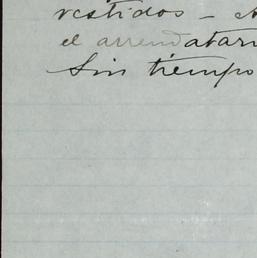 vestidos –
el arrendatari
Sin tiempo